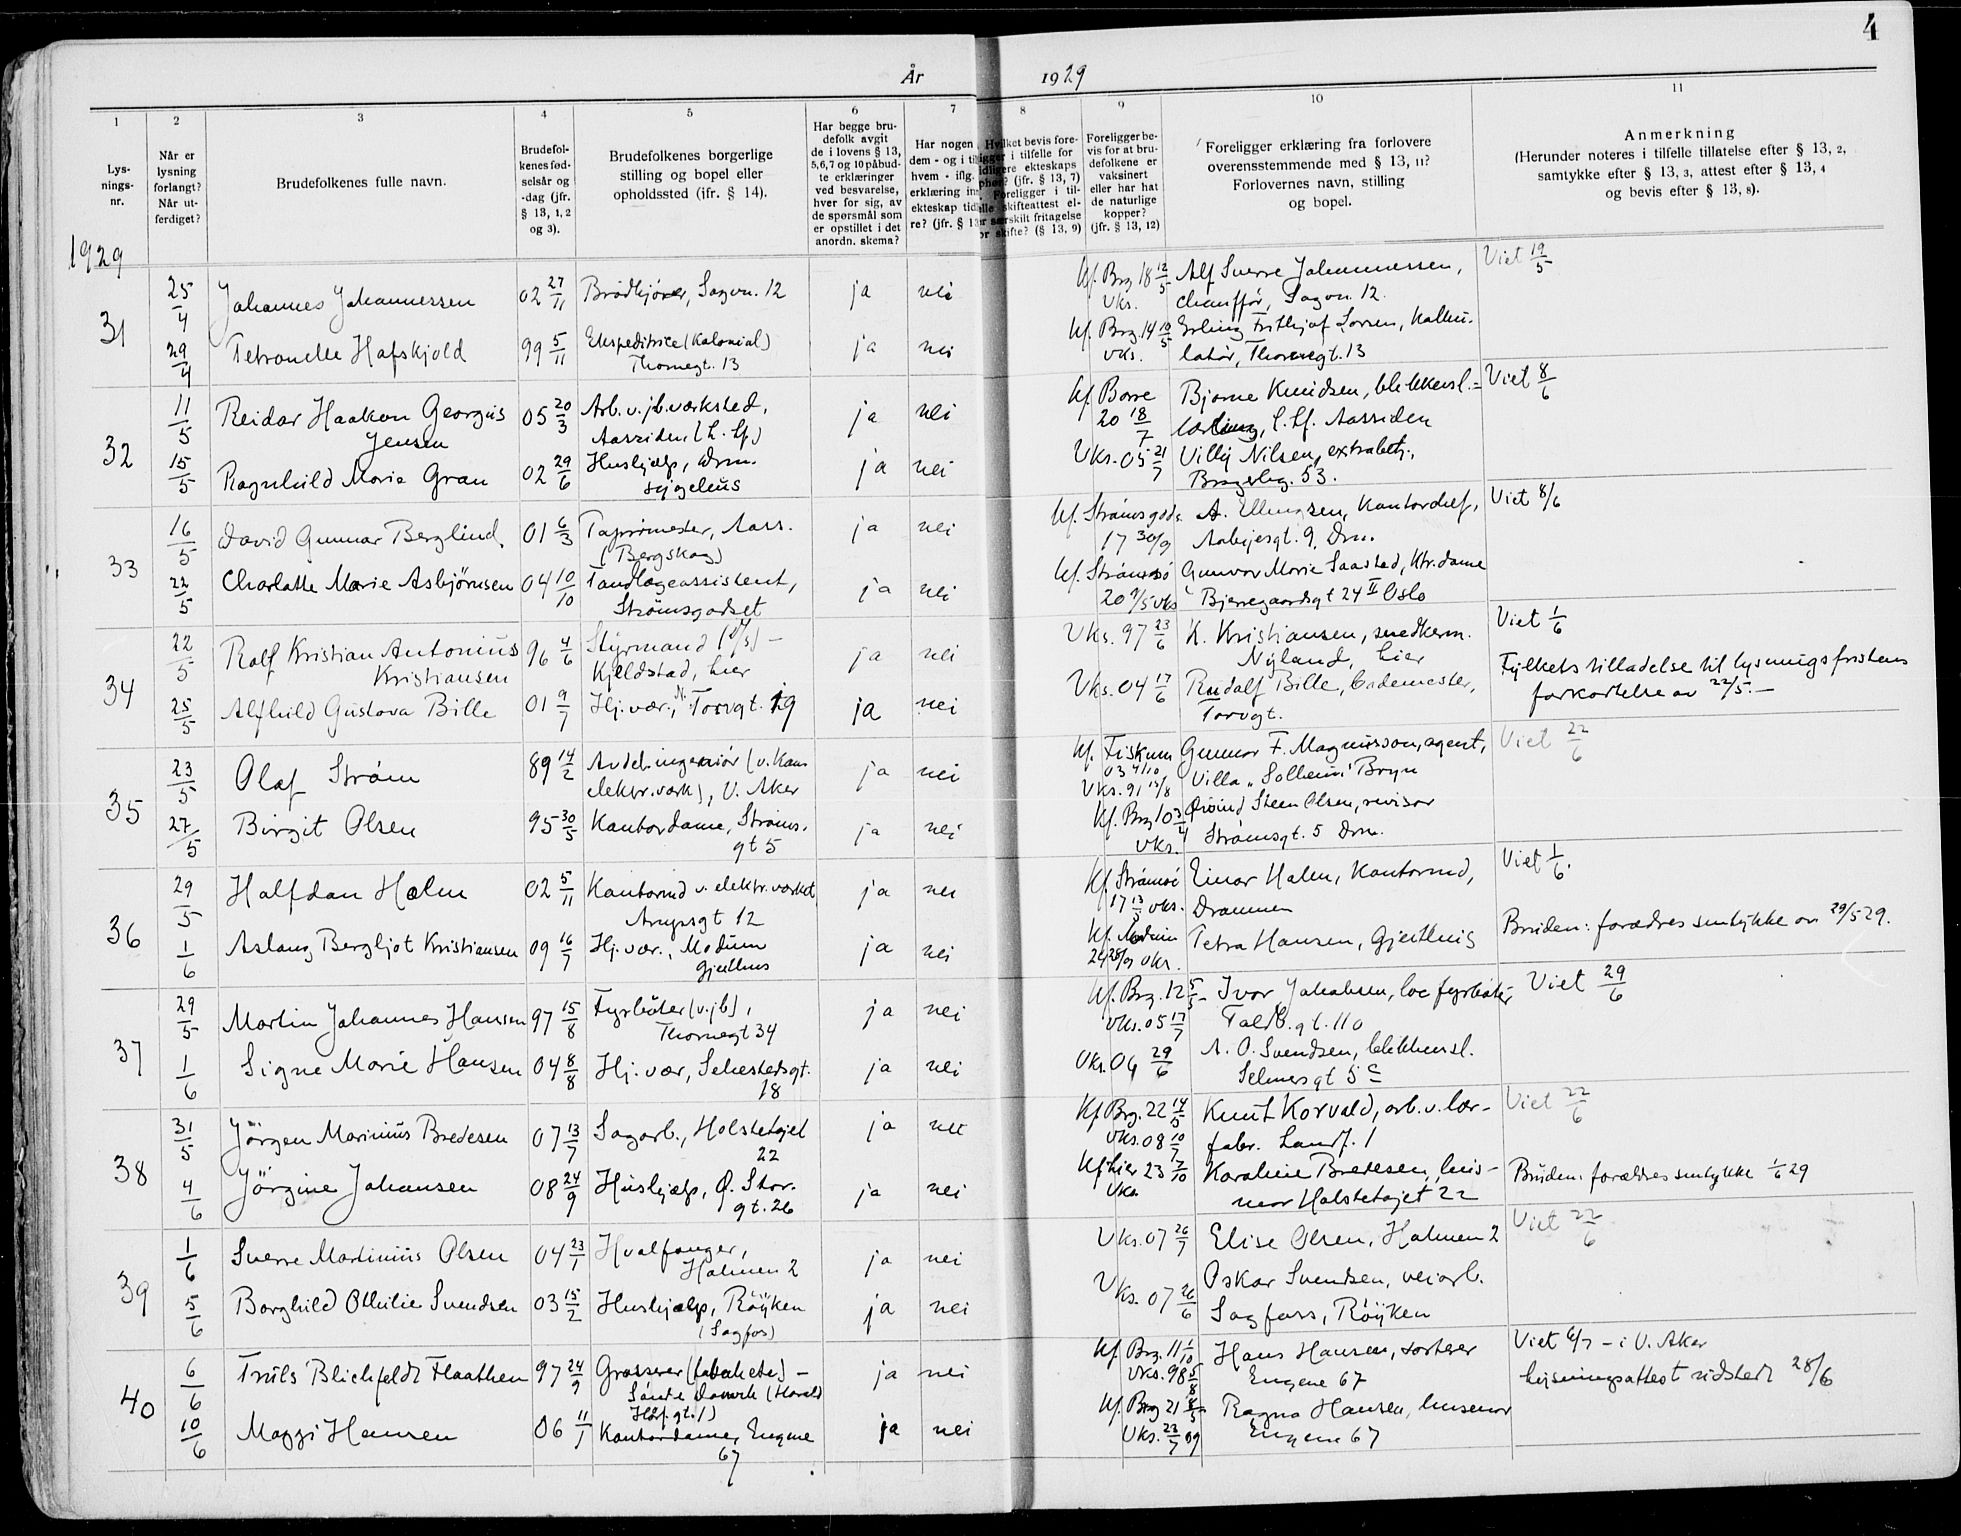 4
År 1929
1 2 3 4 5 6 7 8 9 10 11
Lys-
nings-
nr.
Når er
lysning
forlangt?
Når ut-
ferdiget?
Brudefolkenes fulle navn.
Brudefol-
kenes fød-
selsår og
-dag (jfr.
§ 13, 1, 2
og 3).
Brudefolkenes borgerlige
stilling og bopel eller
opholdssted (ifr. § 14).
Har begge bru-
defolk avgit
de i lovens § 13,
5,6,7 og 10 påbud-
te erklæringer
ved besvarelse,
hver for sig, av
de spørsmål som
er opstillet i det
anordn. skema?
Har nogen
dem - og i ti
hvem - iflg.
erklæring in
ekteskap tid
re? (jfr. § 1
Hvilket bevis fore-
ligger i tilfelle for
tidligere ekteskaps
ophør? (jfr. § 13, 7)
Foreligger i til-
felle skifteattest el-
ler særskilt fritagelse
for skifte? (§ 13, 9)
Foreligger be-
vis for at bru-
defolkene er
vaksinert
eller har hat
de naturlige
kopper?
(jfr. § 13, 12)
Foreligger erklæring fra forlovere
overensstemmende med § 13, 11?
Forlovernes navn, stilling
og bopel.
Anmerkning
(Herunder noteres i tilfelle tillatelse efter § 13, 2,
samtykke efter § 13, 3, attest efter § 13, 4
og bevis efter § 13, 8).
1929
31
25/4 Johannes Johannessen 02 27/11 Brödkjörer, Sagvn. 12 ja nei Kf. Brg 18 12/5 Alf Sverre Johannessen, Viet 19/5
vks. chauffør, Sagvn. 12.
29/4 Petronelle Hafskjold 99 5/11 Ekspeditrice (Kolonial) ja nei Kf. Brg 14 10/5 Erling Frithjof Lorsen, Kalku-
Thornegt. 13 vks. latör, Thornegt. 13
32
11/5 Reidar Haakon Georgius 05 20/3 Arb. v. jb. verksted, ja nei Kf. Borre Bjarne Knudsen, blikkensl.- Viet 8/6
Jensen Aassiden (L. Lf.) 20 18/7 lærling, L. Lf. Aassiden
15/5 Ragnhild Marie Gran 02 29/6 Hushjælp, Drm. ja nei Vks. 05 21/7 Villy Nilsen, extrabetj.,
sygehus Bragerhg. 53.
33
16/5 David Gunnar Berglind 01 6/3 Tapirmester, Aass. ja nei Kf. Strömsgods A. Ellingsen, Kontorchef, Viet 8/6
(Bergskog) 17 30/9 Arbijesgt. 9, Drm.
22/5 Charlotte Marie Asbjörnsen 04 10/10 Tandlægeassistent, ja nei Kf. Strömsö Gunvor Marie Saasted, Ktr. dame
Strömsgodset 20 9/5 vks Bjerregaardsgt 24 II Oslo
34
22/5 Rolf Kristian Antonius 96 4/6 Styrmand (d/s) - ja nei Vks. 97 23/6 K. Kristiansen, snedkerm. Viet 1/6
Kristiansen Kjeldstad, hier Nyland, hier
25/5 Alfhild Gustava Bille 01 9/7 Hj. vær., N. Torvgt. 19 ja nei Vks. 04 17/6 Rudolf Bille, bademester, Fylkets tilladelse til lysningsfristens
Torvgt. forkortelse av 22/5. —
35
23/5 Olaf Ström 89 14/2 Avdel. ingeniör (v. Kom ja nei Kf. Fiskum Gunnar F. Magnusson, agent, Viet 22/6
elektr. verk), V. Aker 03 4/10 Vks. 91 13/8 Villa „Solheim" Bryn
27/5 Birgit Olsen 95 30/5 Kontordame, Ströms. ja nei Kf. Brg 10 3/4 Öivind Steen Olsen, revisor
gt 5 vks. Strömsgt. 5 Drm.
36
29/5 Halfdan Holm 02 5/11 Kontormd v. elektr. verket ja nei Kf. Strömsö Einar Holm, Kontormd, Viet 1/6.
Arupsgt 12 17 13/5 vks. Drammen
1/6 Aslaug Bergljot Kristiansen 09 16/7 Hj. vær., Modum ja nei Kf. Modum Petra Hansen, Gjeithus Bruden: forældres samtykke av 29/5 29.
Gjeithus 24 28/9 vks.
37
29/5 Martin Johannes Hansen 97 15/8 Fyrböter (v. jb), ja nei Kf. Brg. 12 5/5 - Ivar Jakobsen, loc fyrböter, Viet 29/6
Thornegt 34 Vks. 05 17/7 Toldb. gt. 110
1/6 Signe Marie Hansen 04 8/8 Hj. vær, Sehestedsgt. ja nei Vks. 04 29/6 A. O. Svendsen, blikkensl.
18 Selmersgt 5 c
38
31/5 Jörgen Marinius Bredesen 07 13/7 Sagarb., Holstetajet ja nei Kf Brg. 22 14/5 Knut Korvald, arb. v. lær- Viet 22/6
22 Vks. 08 10/7 fabr. Landf. 1
4/6 Jörgine Johansen 08 24/9 Hushjælp, Ø. Stor. ja nei Kf hier 23 7/10 Karoline Bredesen, hus- Bruden: forældres samtykke 1/6 29
gt. 26 Vks. mor Holstetajet 22
39
1/6 Sverre Martinius Olsen 04 23/1 Hvalfanger, ja nei Vks. 07 26/7 Elise Olsen, Holmen 2 Viet 22/6
Holmen 2
5/6 Borghild Othilie Svendsen 03 15/2 Hushjælp, Röyken ja nei Vks. 07 26/6 Oskar Svendsen, veiarb.
(Sagfos) Sagfoss, Röyken
40
6/6 Truls Blichfeldt Flaathen 97 24/9 Grosserer (tobakete) - ja nei Kf. Brg. 11 1/10 Hans Hansen, sorterer Viet 6/7 - i V. Aker
(Harald Vks. 98 5/8 Engene 67 lysningsattest utstedt 28/6
Hårf. gt. 1)
10/6 Maggi Hansen 06 11/1 Kontordame, Engene ja nei Kf. Brg 21 8/5 Ragna Hansen, husmor
67 Vks. 22/7 09 Engene 67